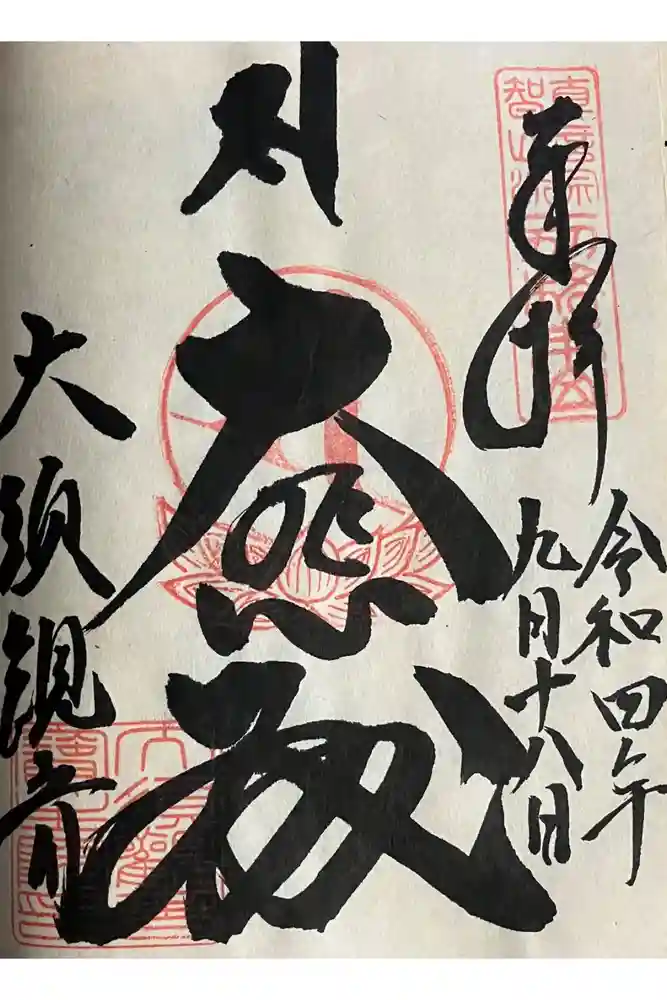 奉拝
令和四年
九月十八日
大悲殿
大須観音